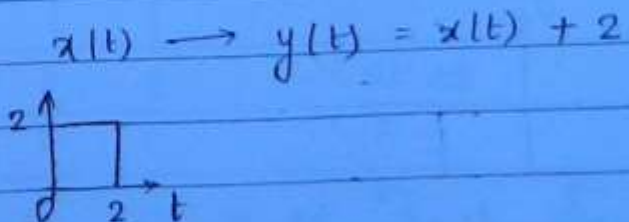 x(t) → y(t) = x(t) + 2
2
0 2 t